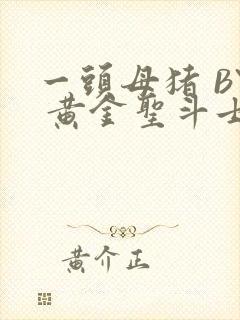 一頭母猪 BY
黄金聖斗士
黄介正